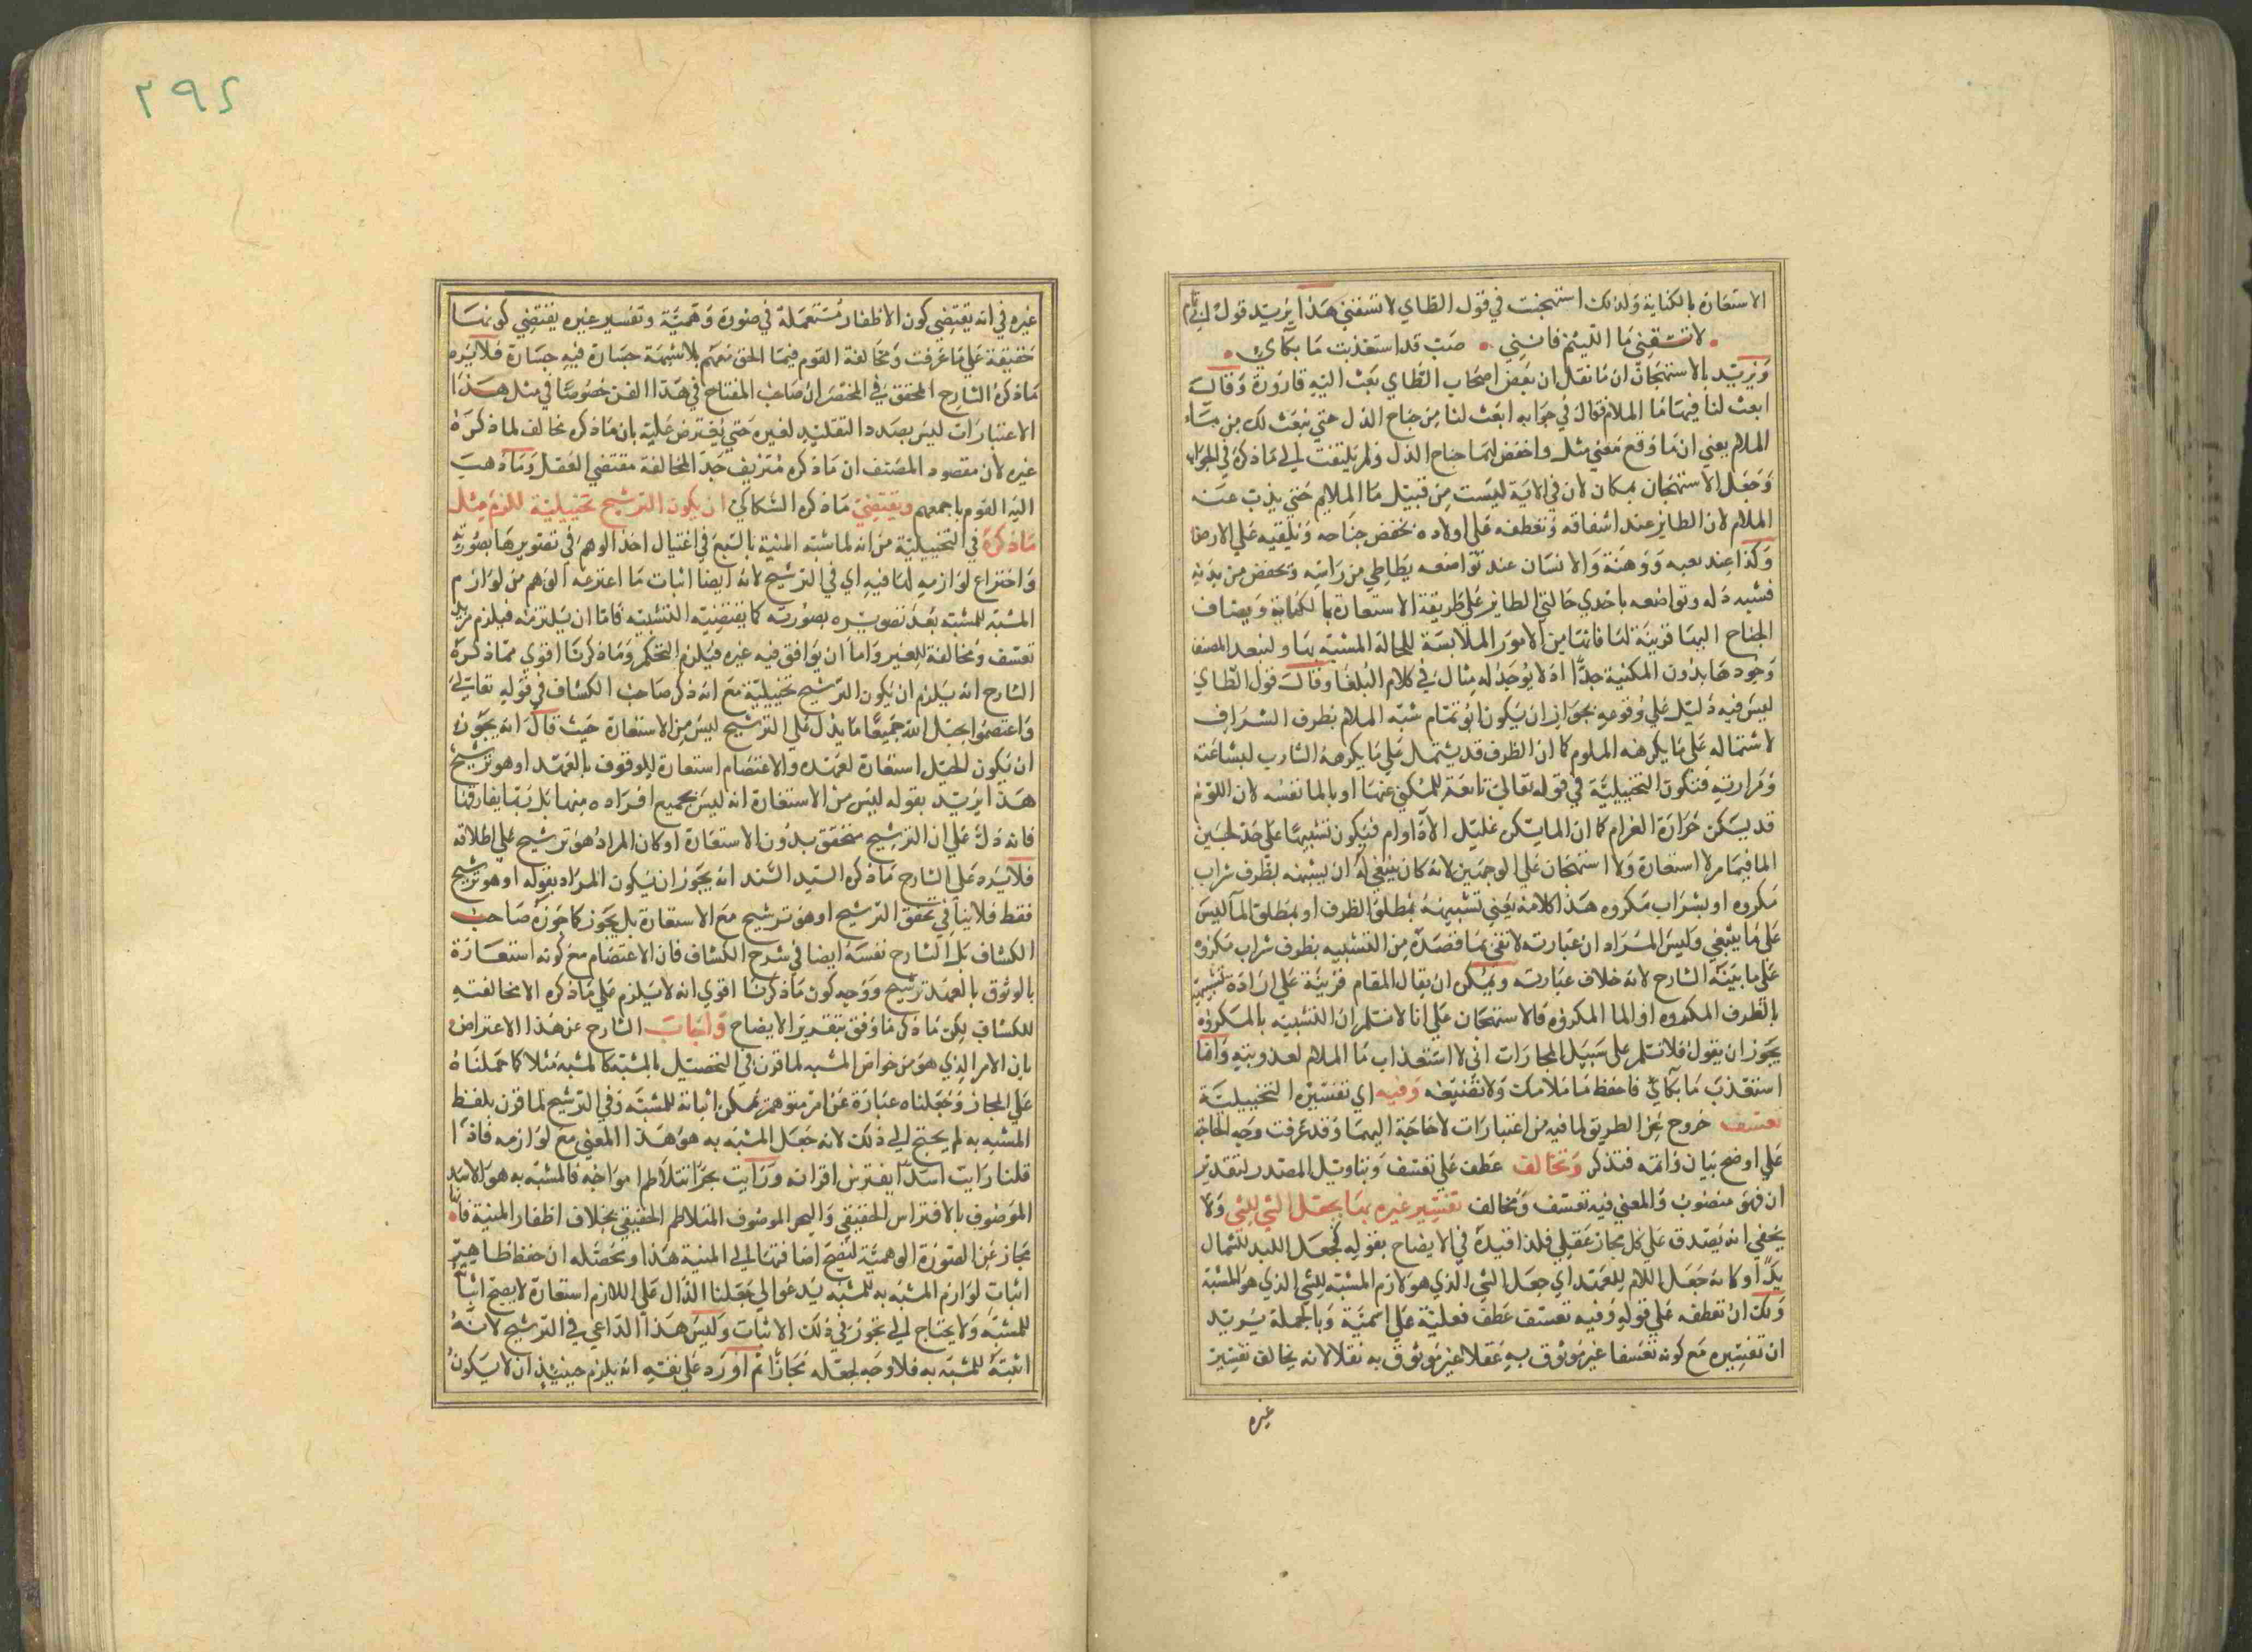 الاستعارة بالكناية ولذلك استهجنت في قول الطاي لا تسقني هذا يريد قول ابي تمام
لا تسقني ما الليم فانني • صب قد استعذبت ما بكآي •
ويريد بالاستهجان ان ما نقل ان بعض اصحاب الطاي بعث اليه قارورة وقالت
ابعث لنا فيها ما الملام فقال في جوابه ابعث لنا من جناح الذل حتي نبعث لك من ماء
الملام يعني ان ما وقع معني مثل واخفض لهما جناح الذل ولم يلتفت الي ما ذكره في الجواب
وجعل الاستهجان بمكان لان في الاية ليست من قبيل ما الملام حتي يذب عنه
الملام لان الطاير عند اشفاقه وتعطفه علي اولاده يخفض جناحه ويلقيه علي الارض
وكذا عند تعبه ووهنه والانسان عند تواضعه يطاطي من راسه ويخفض من يديه
فشبه ذله وتواضعه باحدي حالتي الطاير علي طريقة الاستعارة بالكناية ويضاف
الجناح اليها قرينة لها فانها من الامور الملابسة للحالة المشبه بها واستبعد المصنف
وجودها بدون المكنية جدا اذ لا يوجد له مثال في كلام البلغا وقال قول الطاي
ليس فيه دليل علي وقوعه بجواز ان يكون ابو تمام شبه الملام بظرف الشراب
لاشتماله علي ما يكرهه الملوم كما ان الظرف قد يشتمل علي ما يكرهه الشارب لبشاعته
ومرارته فتكون التخييلية في قوله تعالي تابعة للمكني عنها او بالما نفسه لان اللوم
قد يسكن حرارة الغرام كما ان الما يسكن غليل الاوام فيكون تشبيها علي حد لجين
الما فيما مر لا استعارة ولا استهجان علي الوجهين لانه كان ينبغي له ان يشبهه بظرف شراب
مكروه او بشراب مكروه هذا كلامه يعني تشبيهه بمطلق الظرف او بمطلق المآ ليس
علي ما ينبغي وليس المراد ان عبارته لا تفي بما قصده من التشبيه بظرف شراب مكروه
علي ما بينه الشارح لانه خلاف عبارته ويمكن ان يقال المقام قرينة علي ارادة تشبيهه
بالظرف المكروه او الما المكروه فالاستهجان علي انا لا نسلم ان التشبيه بالمكروه
يجوز ان يقول فلا تسلم علي سبيل المجارات اني لا استعذاب ما الملام لعذوبته وانما
استعذب ما بكآئي فاحفظ ما ملامك ولا تضيعه وفيه اي تفسير التخييلية
تعسف خروج عن الطريق لما فيه من اعتبارات لا حاجة اليها وقد عرفت وجه الحاجة
علي اوضح بيان واتمه فتذكر وتخالف عطف علي تعسف وبتاويل المصدر لتقدير
ان فهو منصوب والمعني فيه تعسف ومخالف تفسير غيره بما يجعل الشي للشي ولا
يخفي انه يصدق علي كل مجاز عقلي فلذا قيده في الايضاح بقوله كجعل لبيد للشمال
يدا وكانه جعل اللام للعهد اي جعل الشي الذي هو لازم المشبه للشي الذي هو المشبه
ولك ان تعطفه علي قوله وفيه تعسف عطف فعلية علي اسمية وبالجملة يريد
ان تفسيره مع كونه تعسفا غير موثوق به عقلا غير موثوق به نقلا لانه يخالف تفسير
غيره
٢٩٤
غيره في انه يقتضي كون الاظفار مستعملة في صورة وهمية وتفسير غيره يقتضي كونها
حقيقة علي ما عرفت ومخالفة القوم فيما الحق معهم بلا شبهة جسارة فيه جسارة فلا يرد
ما ذكره الشارح المحقق في المختصر ان صاحب المفتاح في هذا الفن خصوصا في مثل هذا
الاعتبارات ليس بصدد التقليد لغيره حتي يفترض عليه بان ما ذكره مخالف لما ذكره
غيره لان مقصود المصنف ان ما ذكره متزيف جدا لمخالفة مقتضي العقل وما ذهب
اليه القوم باجمعهم ويقتضي ما ذكره السكاكي ان يكون الترشيح تخييلية للزوم مثل
ما ذكره في التخييلية من انه لما شبه المنية بالسبع في اغتيال اخذ الوهم في تصويرها بصورته
واختراع لوازمه لها فيه اي في الترشيح لانه ايضا اثبات ما اخترعه الوهم من لوازم
المشبه للمشبه بعد تصويره بصورته كما يقتضيه التشبيه فاما ان يلتزمه فيلزم مزيد
تعسف ومخالفة للغير واما ان يوافق فيه غيره فيلزم التحكم وما ذكرنا اقوي مما ذكره
الشارح انه يلزم ان يكون الترشيح تخييلية مع انه ذكر صاحب الكشاف في قوله تعالي
واعتصموا بحبل الله جميعا ما يدل علي الترشيح ليس من الاستعارة حيث قال انه يجوز
ان يكون الحبل استعارة لعهده والاعتصام استعارة للوقوف بالعهد او هو ترشيح
هذا يريد بقوله ليس من الاستعارة انه ليس بجميع افراده منها بل ربما يفارقها
فانه دل علي ان الترشيح متحقق بدون الاستعارة او كان المراد هو ترشيح علي اطلاقه
فلا يرد علي الشارح ما ذكره السيد السند انه يجوز ان يكون المراد بقوله او هو ترشيح
فقط فلا ينافي تحقق الترشيح او هو ترشيح مع الاستعارة بل يجوز كما جوزه صاحب
الكشاف بل الشارح نفسه ايضا في شرح الكشاف فان الاعتصام مع كونه استعارة
بالوثوق بالعهد ترشيح ووجه كون ما ذكرنا اقوي انه لا يلزم علي ما ذكره الا مخالفته
للكشاف لكن ما ذكر ما وفق بتقدير الايضاح واجاب الشارح عن هذا الاعتراض
بان الامر الذي هو من خواص المشبه لما قرن في التخييل بالمشبه كالمشبه مثلا كما حملناه
علي المجاز وجعلناه عبارة عن امر متوهم يمكن اثباته للمشبه وفي الترشيح لما قرن بلفظ
المشبه به لم يحتج الي ذلك لانه جعل المشبه به هو هذا المعني مع لوازمه فاذا
قلنا رايت اسدا يفترس اقرانه ورايت بحرا تتلاطم امواجه فالمشبه به هو الاسد
الموصوف بالافتراس الحقيقي والبحر الموصوف المتلاطم الحقيقي بخلاف اظفار المنية فانها
مجاز عن الصورة الوهمية لتصح اضافتها الي المنية هذا ومحصله ان حفظ ظاهر
اثبات لوازم المشبه به للمشبه يدعوا الي جعلنا الدال علي اللازم استعارة لا يصح اثباته
للمشبه ولا يحتاج الي تجوز في ذلك الاثبات وليس هذا الداعي في الترشيح لانه
اثبته للمشبه به فلا وجه لجعله مجازا ثم اورد علي نفسه انه يلزم حينئذ ان لا يكون